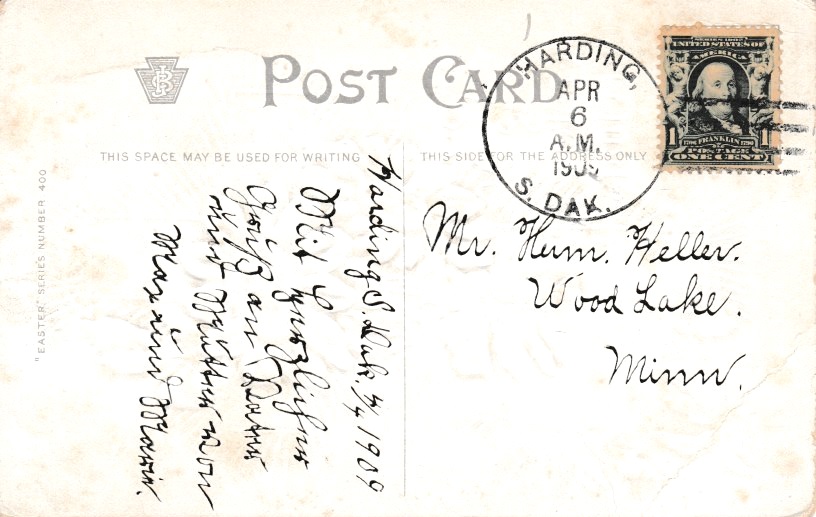 POST CARD
THIS SPACE MAY BE USED FOR WRITING
THIS SIDE FOR THE ADDRESS ONLY
"EASTER" SERIES NUMBER 400
HARDING,
APR
6
A.M.
1909
S. DAK.
SERIES 1902
UNITED STATES OF
AMERICA
1 1706 FRANKLIN 1790 1
POSTAGE
ONE CENT
Mr. Herm. Heller.
Wood Lake.
Minn.
Harding S. Dak. 5/4 1909
Mit herzlichem
Gruß an Vater
und Mutter von
Max und Marie.